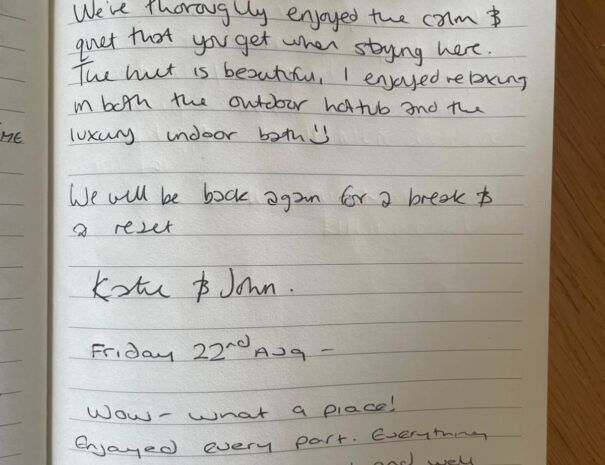 We've thoroughly enjoyed the calm &
quiet that you get when staying here.
The hut is beautiful, I enjoyed relaxing
in both the outdoor hottub and the
luxury indoor bath :)
ME
We will be back again for a break &
a reset
Katie & John.
Friday 22nd Aug -
Wow - what a place!
Enjoyed every part. Everything
and well